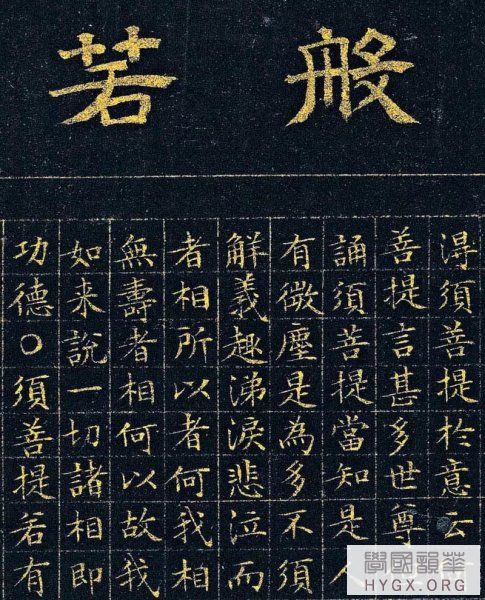 般若
淂須菩提於意云
菩提言甚多世尊
誦須菩提當知是人
有微塵是為多不須
解義趣涕淚悲泣而
者相所以者何我相
無壽者相何以故我
如来說一切諸相即
功德〇須菩提若有
華韻國學
HYGX.ORG